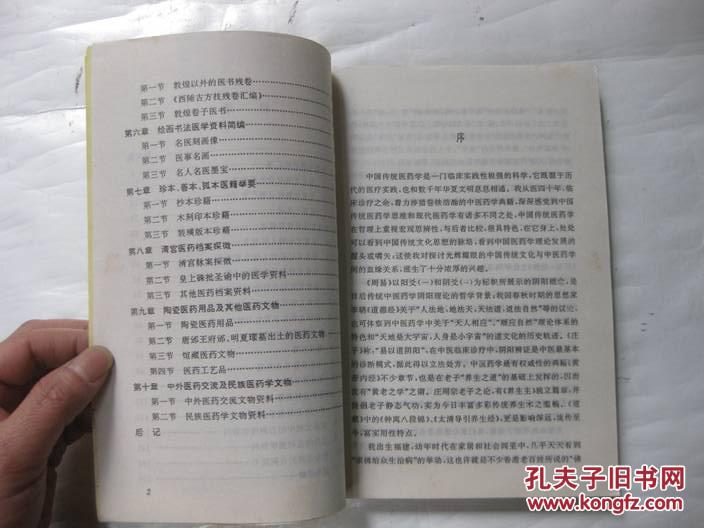 第一节 敦煌以外的医书残卷
第二节 《西陲古方技残卷汇编》
第三节 敦煌卷子医书
第六章 绘画书法医学资料简编
第一节 名医刻画像
第二节 医事名画
第三节 名人名医墨宝
第七章 珍本、善本、孤本医籍举要
第一节 抄本珍籍
第二节 木刻印本珍籍
第三节 装璜版本珍籍
第八章 清宫医药档案探微
第一节 清宫脉案探微
第二节 皇上硃批圣谕中的医学资料
第三节 其他医药档案资料
第九章 陶瓷医药用品及其他医药文物
第一节 陶瓷医药用品
第二节 唐邠王府邸、明夏墩墓出土的医药文物
第三节 馆藏医药文物
第四节 医药工艺品
第十章 中外医药交流及民族医药学文物
第一节 中外医药交流文物资料
第二节 民族医药学文物资料
后 记
2
序
中国传统医药学是一门临床实践性极强的科学，它既覆于历
代的医疗实践，也和数千年华夏文明息息相通。我从医四十年，临
床诊疗之余，着力涉猎卷帙浩渺的中医药学典籍，深深感觉到中国
传统医药学思维和现代医药学有诸多不同之处，中国传统医药学
在哲理上重视宏观思辨性，与后者比较，很具特色，在它身上，处处
可以看到中国传统文化思想的脉络，看到中国医药学理论发展的
源头或嚆矢，这使我对探讨光辉耀眼的中国传统文化与中医药学
间的血缘关系，滋生了十分浓厚的兴趣。
《周易》以阳爻（—）和阴爻（--）为标帜所展示的阴阳概念，是
其后传统中医药学阴阳理论的哲学背景；我国春秋时期的思想家
李聃《道德经》关于“人法地，地法天，天法道，道法自然”等的议论，
也可体察到中医药学中关于“天人相应”、“顺应自然”理论体系的
特色和“天地是大宇宙，人身是小宇宙”的道文化的历史轨迹。《庄
子》称：“易以道阴阳”，在中医临床诊疗中，阴阳辨证是中医最基本
的诊断模式，据此得以立法处方。中医药学最有权威性的典籍《黄
帝内经》不少章节，也是在老子“养生之道”的基础上发挥的，因而
故有“黄老之学”之谓。庄周宗老子之论，有《养生主》独立篇章，并
老子静态气功，实为今日丰富多彩传统养生术之滥觞。《道
藏》中的《钟离八段锦》、《太清导引养生经》，更是影响深远，流传至
今，富实用性特点。
我出生福建，幼年时代在家居和社会闾里中，几乎天天看到
给众生治病”的举动，这也许就是不少香港老百姓所说的“佛
孔夫子旧书网
KONGFZ.COM